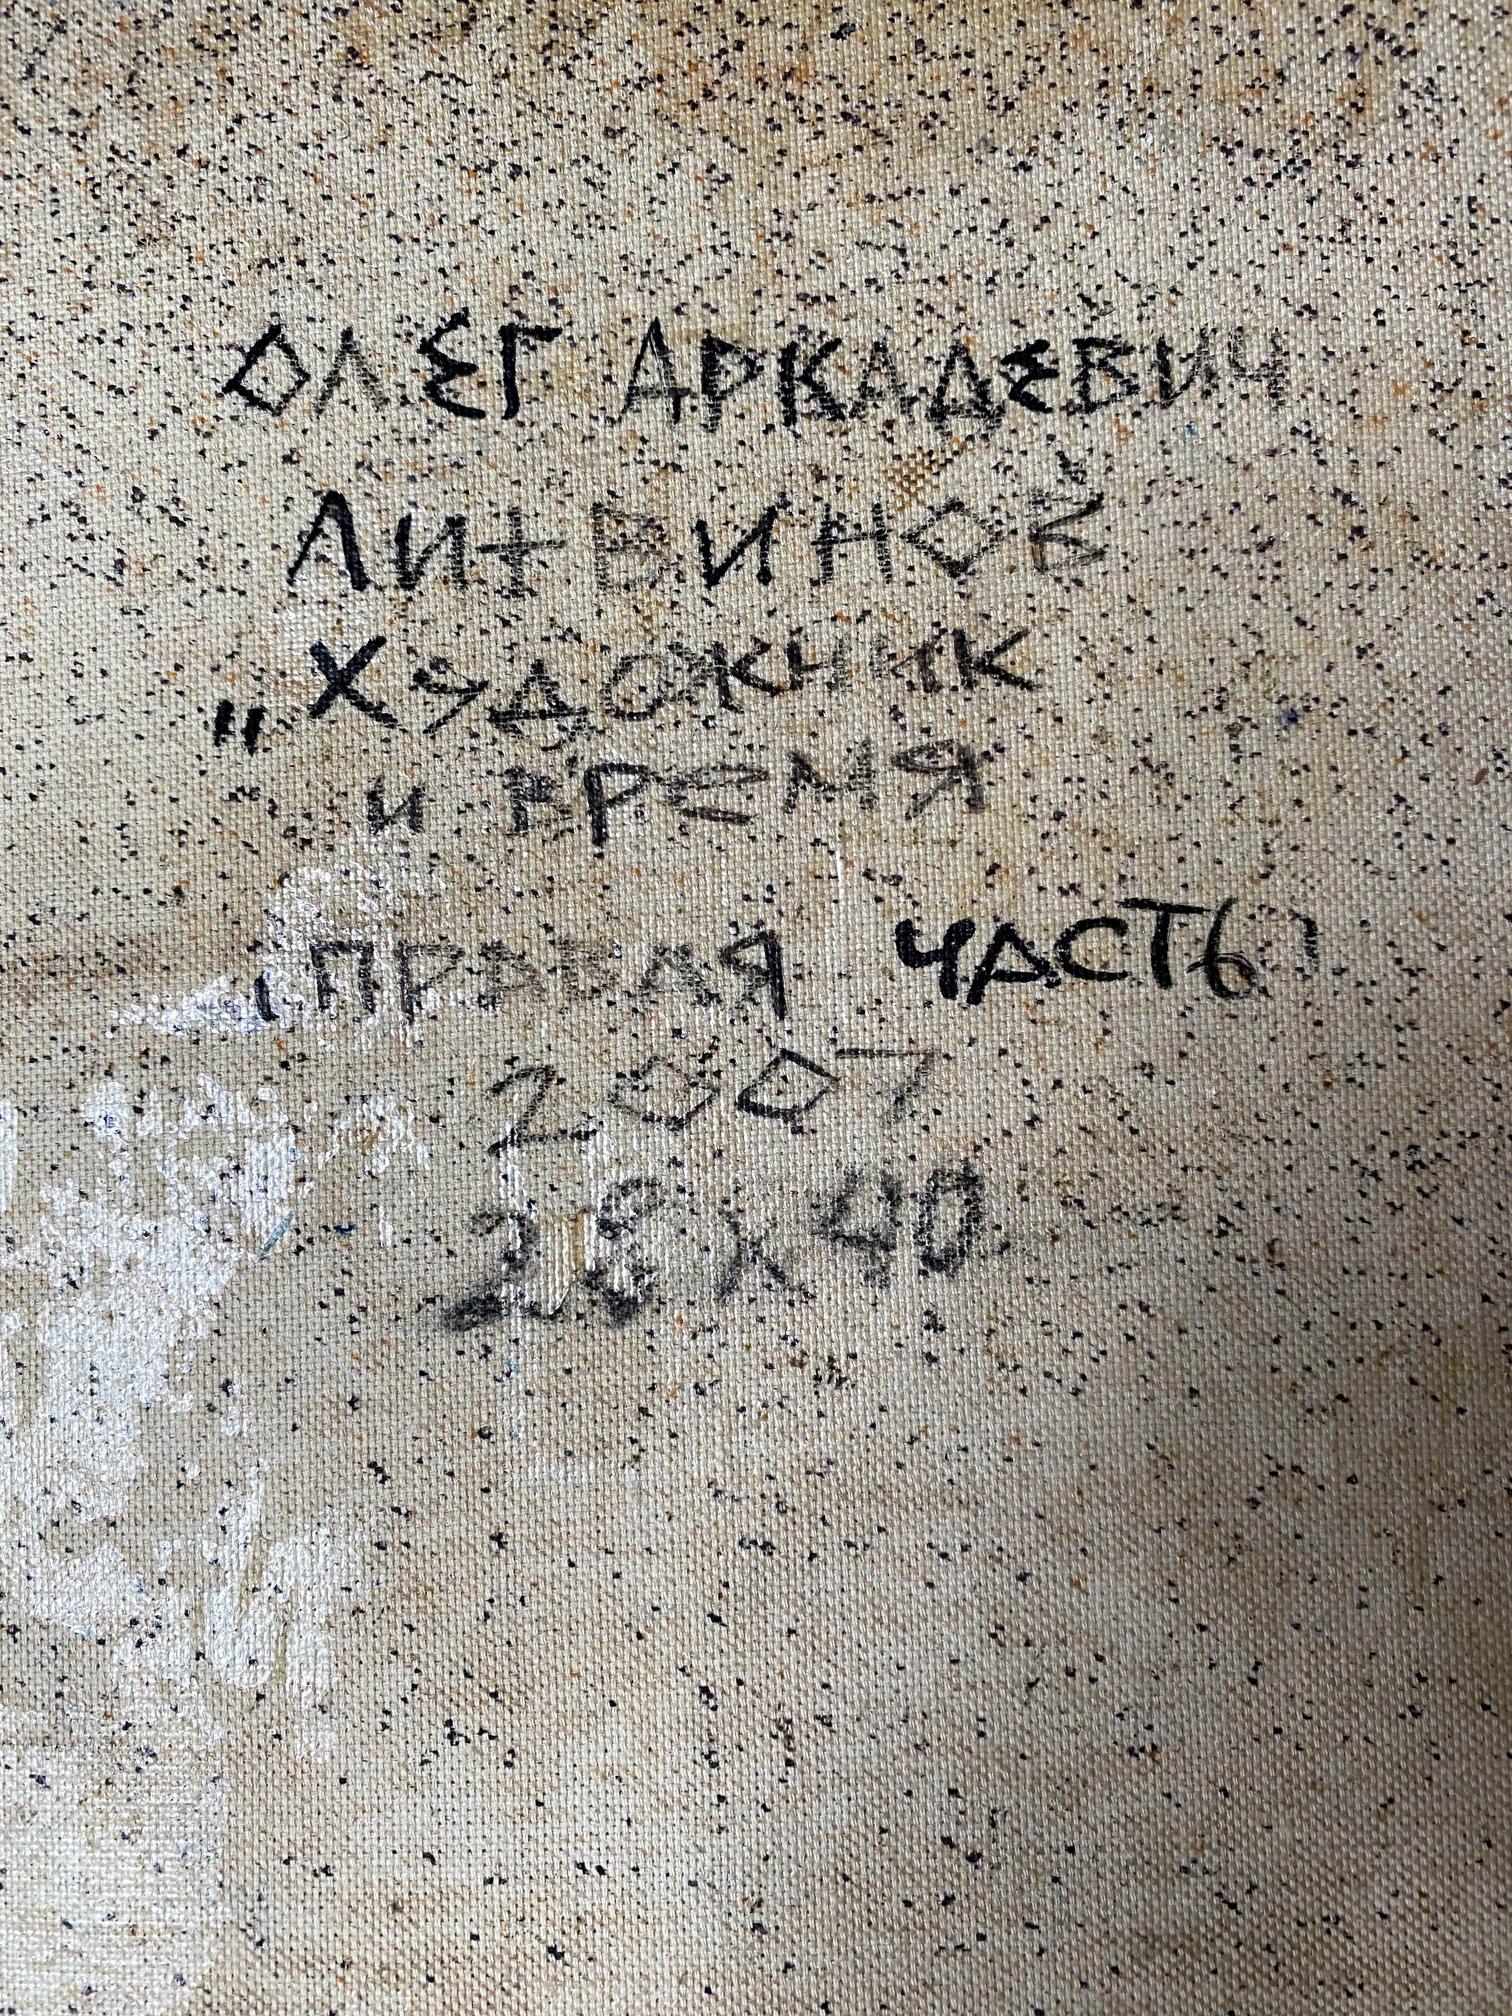 ОЛЕГ АРКАДЕВИЧ
ЛИТВИНОВ
„ХУДОЖНИК
И ВРЕМЯ
(ПРАВАЯ ЧАСТЬ)
2007
28 х 40